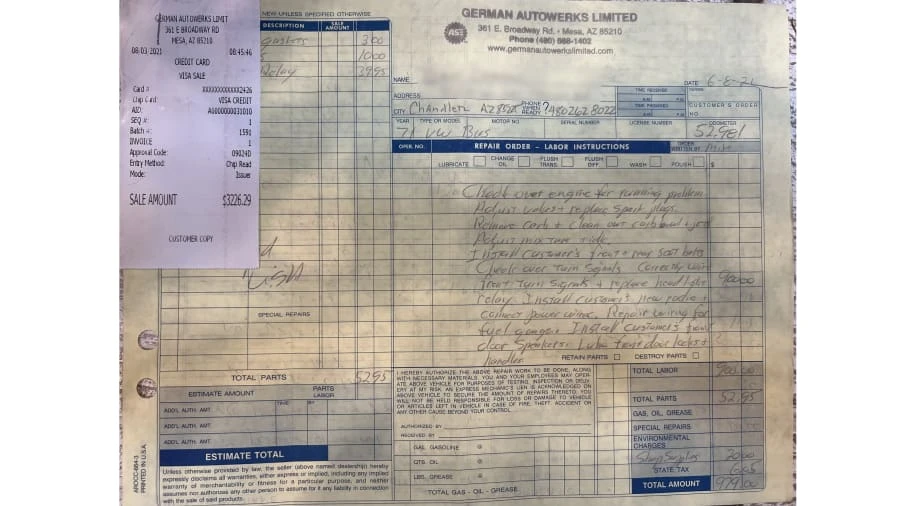 GERMAN AUTOWERKS LIMIT
361 E BROADWAY RD
MESA, AZ 85210
08/03/2021 08:45:46
CREDIT CARD
VISA SALE
Card # XXXXXXXXXXXX2426
Chip Card: VISA CREDIT
AID: A0000000031010
SEQ #: 1
Batch #: 1591
INVOICE 1
Approval Code: 09024D
Entry Method: Chip Read
Mode: Issuer
SALE AMOUNT $3226.29
CUSTOMER COPY
NEW UNLESS SPECIFIED OTHERWISE
DESCRIPTION SALE AMOUNT
Gaskets 3 00
10 00
Relay 39 95
SPECIAL REPAIRS
TOTAL PARTS 52 95
ESTIMATE AMOUNT PARTS LABOR
ADD'L AUTH. AMT. TIME BY
ADD'L AUTH. AMT.
ADD'L AUTH. AMT.
ESTIMATE TOTAL
Unless otherwise provided by law, the seller (above named dealership) hereby
expressly disclaims all warranties, either express or implied, including any implied
warranty of merchantability or fitness for a particular purpose, and neither
assumes nor authorizes any other person to assume for it any liability in connection
with the sale of said products.
AROCC-664-3
PRINTED IN U.S.A.
GERMAN AUTOWERKS LIMITED
361 E. Broadway Rd. • Mesa, AZ 85210
Phone (480) 668-1402
www.germanautowerkslimited.com
NAME DATE
ADDRESS TIME RECEIVED A.M. P.M.
CITY Chandler AZ PHONE WHEN READY 4802628022 TIME PROMISED A.M. P.M. CUSTOMER'S ORDER NO.
YEAR TYPE OR MODEL MOTOR NO. SERIAL NUMBER LICENSE NUMBER ODOMETER
71 VW Bus 52,981
OPER. NO. REPAIR ORDER - LABOR INSTRUCTIONS ORDER WRITTEN BY
LUBRICATE CHANGE OIL FLUSH TRANS. FLUSH DIFF. WASH POLISH $
Check over engine for running problem
Adjust valves + replace spark plugs
Remove carb + clean out carb bowl + jets
Adjust mixture + idle
Install customer's front + rear seat belts
Check over turn signals Correctly wire
front turn signals + replace headlight 900 00
relay Install customer's new radio +
connect power wires. Repair wiring for
fuel gauge. Install customer's front
door speakers. Lube front door locks +
handles
RETAIN PARTS DESTROY PARTS
I HEREBY AUTHORIZE THE ABOVE REPAIR WORK TO BE DONE, ALONG
WITH NECESSARY MATERIALS. YOU AND YOUR EMPLOYEES MAY OPER-
ATE ABOVE VEHICLE FOR PURPOSES OF TESTING, INSPECTION OR DELIV-
ERY AT MY RISK. AN EXPRESS MECHANIC'S LIEN IS ACKNOWLEDGED ON
ABOVE VEHICLE TO SECURE THE AMOUNT OF REPAIRS THERETO. YOU
WILL NOT BE HELD RESPONSIBLE FOR LOSS OR DAMAGE TO VEHICLE
OR ARTICLES LEFT IN VEHICLE IN CASE OF FIRE, THEFT, ACCIDENT OR
ANY OTHER CAUSE BEYOND YOUR CONTROL.
AUTHORIZED BY
RECEIVED BY
GAL. GASOLINE @
QTS. OIL @
LBS. GREASE @
TOTAL GAS - OIL - GREASE
TOTAL LABOR 900 00
TOTAL PARTS 52 95
GAS, OIL, GREASE
SPECIAL REPAIRS
ENVIRONMENTAL CHARGES
Shop Supplies 20 00
STATE TAX
TOTAL AMOUNT 979 00